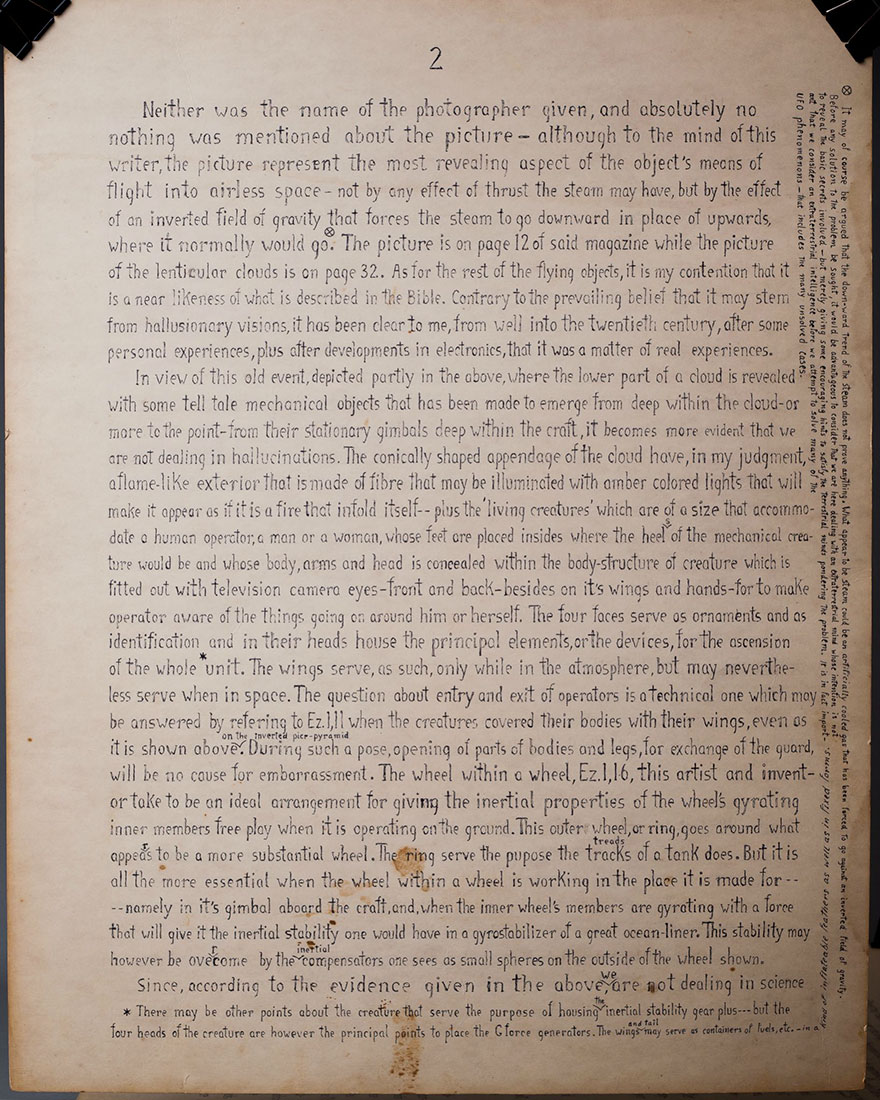 2
Neither was the name of the photographer given, and absolutely no
nothing was mentioned about the picture – although to the mind of this
writer, the picture represent the most revealing aspect of the object's means of
flight into airless space – not by any effect of thrust the steam may have, but by the effect
of an inverted field of gravity that forces the steam to go downward in place of upwards,
where it normally would go.⊗ The picture is on page 12 of said magazine while the picture
of the lenticular clouds is on page 32. As for the rest of the flying objects, it is my contention that it
is a near likeness of what is described in the Bible. Contrary to the prevailing belief that it may stem
from hallusionary visions, it has been clear to me, from well into the twentieth century, after some
personal experiences, plus after developments in electronics, that it was a matter of real experiences.
In view of this old event, depicted partly in the above, where the lower part of a cloud is revealed
with some tell tale mechanical objects that has been made to emerge from deep within the cloud-or
more to the point-from their stationary gimbals deep within the craft, it becomes more evident that we
are not dealing in hallucinations. The conically shaped appendage of the cloud have, in my judgment,
a flame-like exterior that is made of fibre that may be illuminated with amber colored lights that will
make it appear as if it is a fire that infold itself-- plus the 'living creatures' which are of a size that accommo-
date a human operator, a man or a woman, whose feet are placed insides where the heels of the mechanical crea-
ture would be and whose body, arms and head is concealed within the body-structure of creature which is
fitted out with television camera eyes-front and back-besides on it's wings and hands-for to make
operator aware of the things going on around him or herself. The four faces serve as ornaments and as
identification and in their heads house the principal elements, or the devices, for the ascension
of the whole * unit. The wings serve, as such, only while in the atmosphere, but may neverthe-
less serve when in space. The question about entry and exit of operators is a technical one which may
be answered by refering to Ez.1,11 when the creatures covered their bodies with their wings, even as
it is shown above on the inverted picr-pyramid. During such a pose, opening of parts of bodies and legs, for exchange of the guard,
will be no cause for embarrassment. The wheel within a wheel, Ez.1,16, this artist and invent-
or take to be an ideal arrangement for giving the inertial properties of the wheel's gyrating
inner members free play when it is operating on the ground. This outer wheel, or ring, goes around what
appears to be a more substantial wheel. The ring serve the pupose the treads tracks of a tank does. But it is
all the more essential when the wheel within a wheel is working in the place it is made for --
-- namely in it's gimbal aboard the craft, and, when the inner wheel's members are gyrating with a force
that will give it the inertial stability one would have in a gyrostabilizer of a great ocean-liner. This stability may
however be overcome by the inertial compensators one sees as small spheres on the outside of the wheel shown.
Since, according to the evidence given in the above, we are not dealing in science
* There may be other points about the creature that serve the purpose of housing the inertial stability gear plus --- but the
four heads of the creature are however the principal points to place the G force generators. The wings and tail may serve as containers of fuels, etc. – in a
⊗ It may of course be argued that the down-ward trend of the steam does not prove anything. What appear to be steam could be an artificially cooled gas that has been forced to go against an inverted field of gravity.
Before any solution to the problem, be sought, it would be advantageous to consider that we are here dealing with an extraterrestrial mind whose intention is not
to reveal the basic secrets involved – but merely giving some encouraging hints to satisfy the terrestrial minds pondering the problem. It is in fact import-
ant that we consider an extraterrestrial intelligence before we attempt to solve many of the
UFO phenomenons – that includes the many unsolved cases.